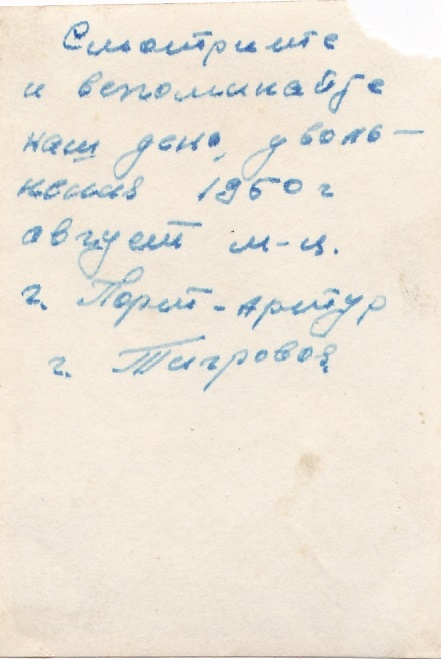 Смотрите
и вспоминайте
наш день, уволь-
нения 1950 г
август м-ц.
г. Порт-Артур
г. Тигровая